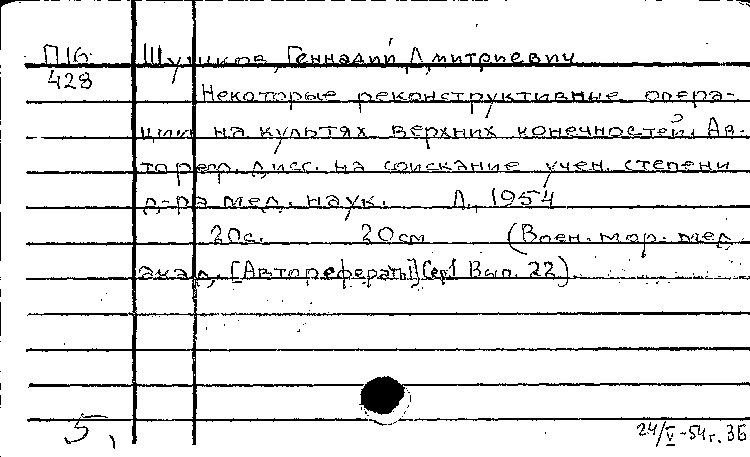 П16 Шушков, Геннадий Дмитриевич
428
Некоторые реконструктивные опера-
ции на культях верхних конечностей. Ав-
тореф. дисс. на соискание учен. степени
д-ра мед. наук. Л., 1954
20с. 20см (Воен. мор. мед.
акад. [Авторефераты] Сер1 Вып. 22).
5,
24/V-54г. ЗБ